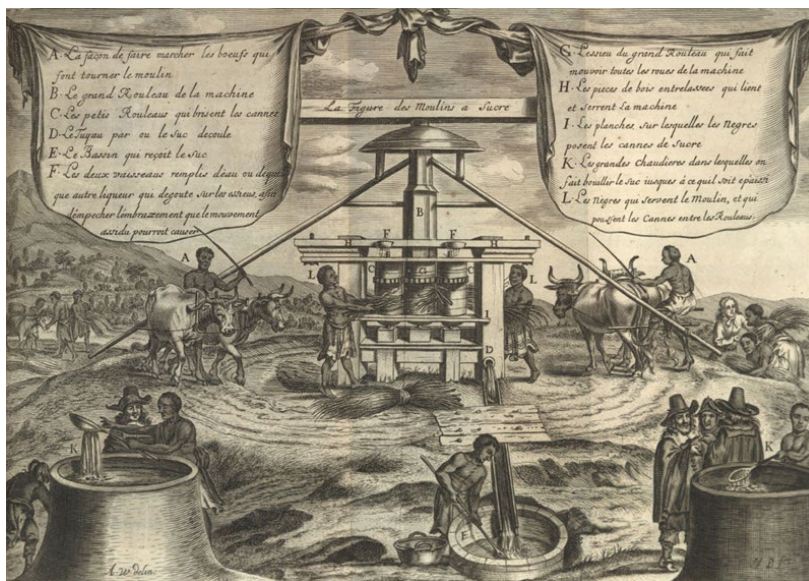 A. La façon de faire marcher les boeufs qui
font tourner le moulin
B. Le grand Rouleau de la machine
C. Les petis Rouleaus qui brisent les cannes
D. Le Tuyau par ou le suc decoule
E. Le Bassin qui reçoit le suc
F. Les deux vaisseaus remplis deau ou de quel
que autre liqueur qui degoute sur les essieus, afin
dempecher lembrazement que le mouvement
assidu pourroit causer
La Figure des Moulins a Sucre
G. Lessieu du grand Rouleau qui fait
mouvoir toutes les roues de la machine
H. Les pieces de bois entrelassees qui lient
et serrent la machine
I. Les planches, sur lesquelles les Negres
posent les cannes de sucre
K. Les grandes Chaudieres dans lesquelles on
fait bouillir le suc iusques à ce quil soit epaissi
L. Les Negres qui servent le Moulin, et qui
poussent les Cannes entre les Rouleaus.
B
H F F H
A A
L C G C L
I
D
K K
E
A. W. delin.